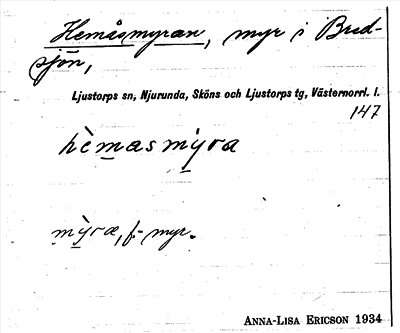 Hemåsmyran, myr i Bred-
sjön,
Ljustorps sn, Njurunda, Sköns och Ljustorps tg, Västernorrl. l.
147
hèmasmỳra
mỳra, f. myr.
ANNA-LISA ERICSON 1934